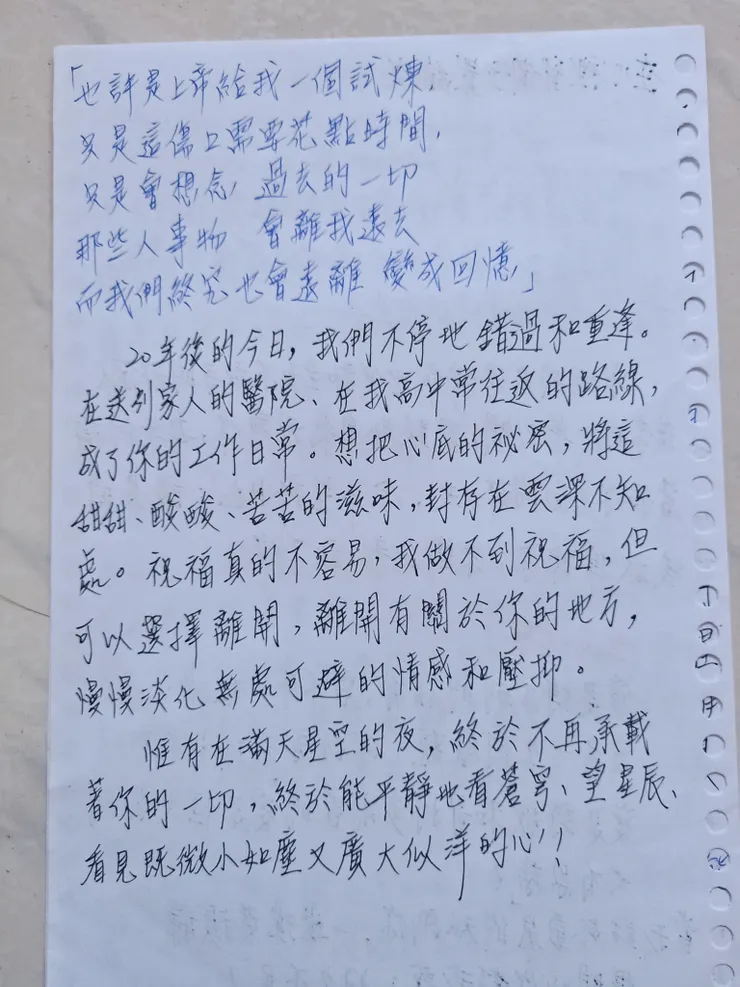 「也許是上帝給我一個試煉
只是這傷口需要花點時間,
只是會想念, 過去的一切
那些人事物 會離我遠去
而我們終究也會遠離 變成回憶,」
20年後的今日,我們不停地錯過和重逢。
在送別家人的醫院、在我高中常往返的路線,
成了你的工作日常。想把心底的祕密,將這
甜甜、酸酸、苦苦的滋味,封存在雲深不知
處。祝福真的不容易,我做不到祝福,但
可以選擇離開,離開有關於你的地方,
慢慢淡化無處可避的情感和壓抑。
惟有在滿天星空的夜,終於不再承載
著你的一切,終於能平靜地看蒼穹、望星辰、
看見既微小如塵又廣大似洋的心!!